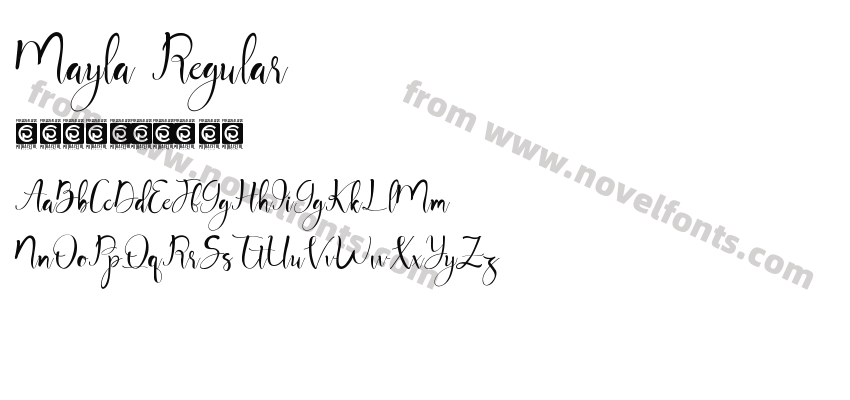 Mayla Regular
AaBbCcDdEeFfGgHhIiGgKkLlMm
NnOoPpQqRrSsTtUuVvWwXxYyZz
from www.novelfonts.com
from www.novelfonts.com